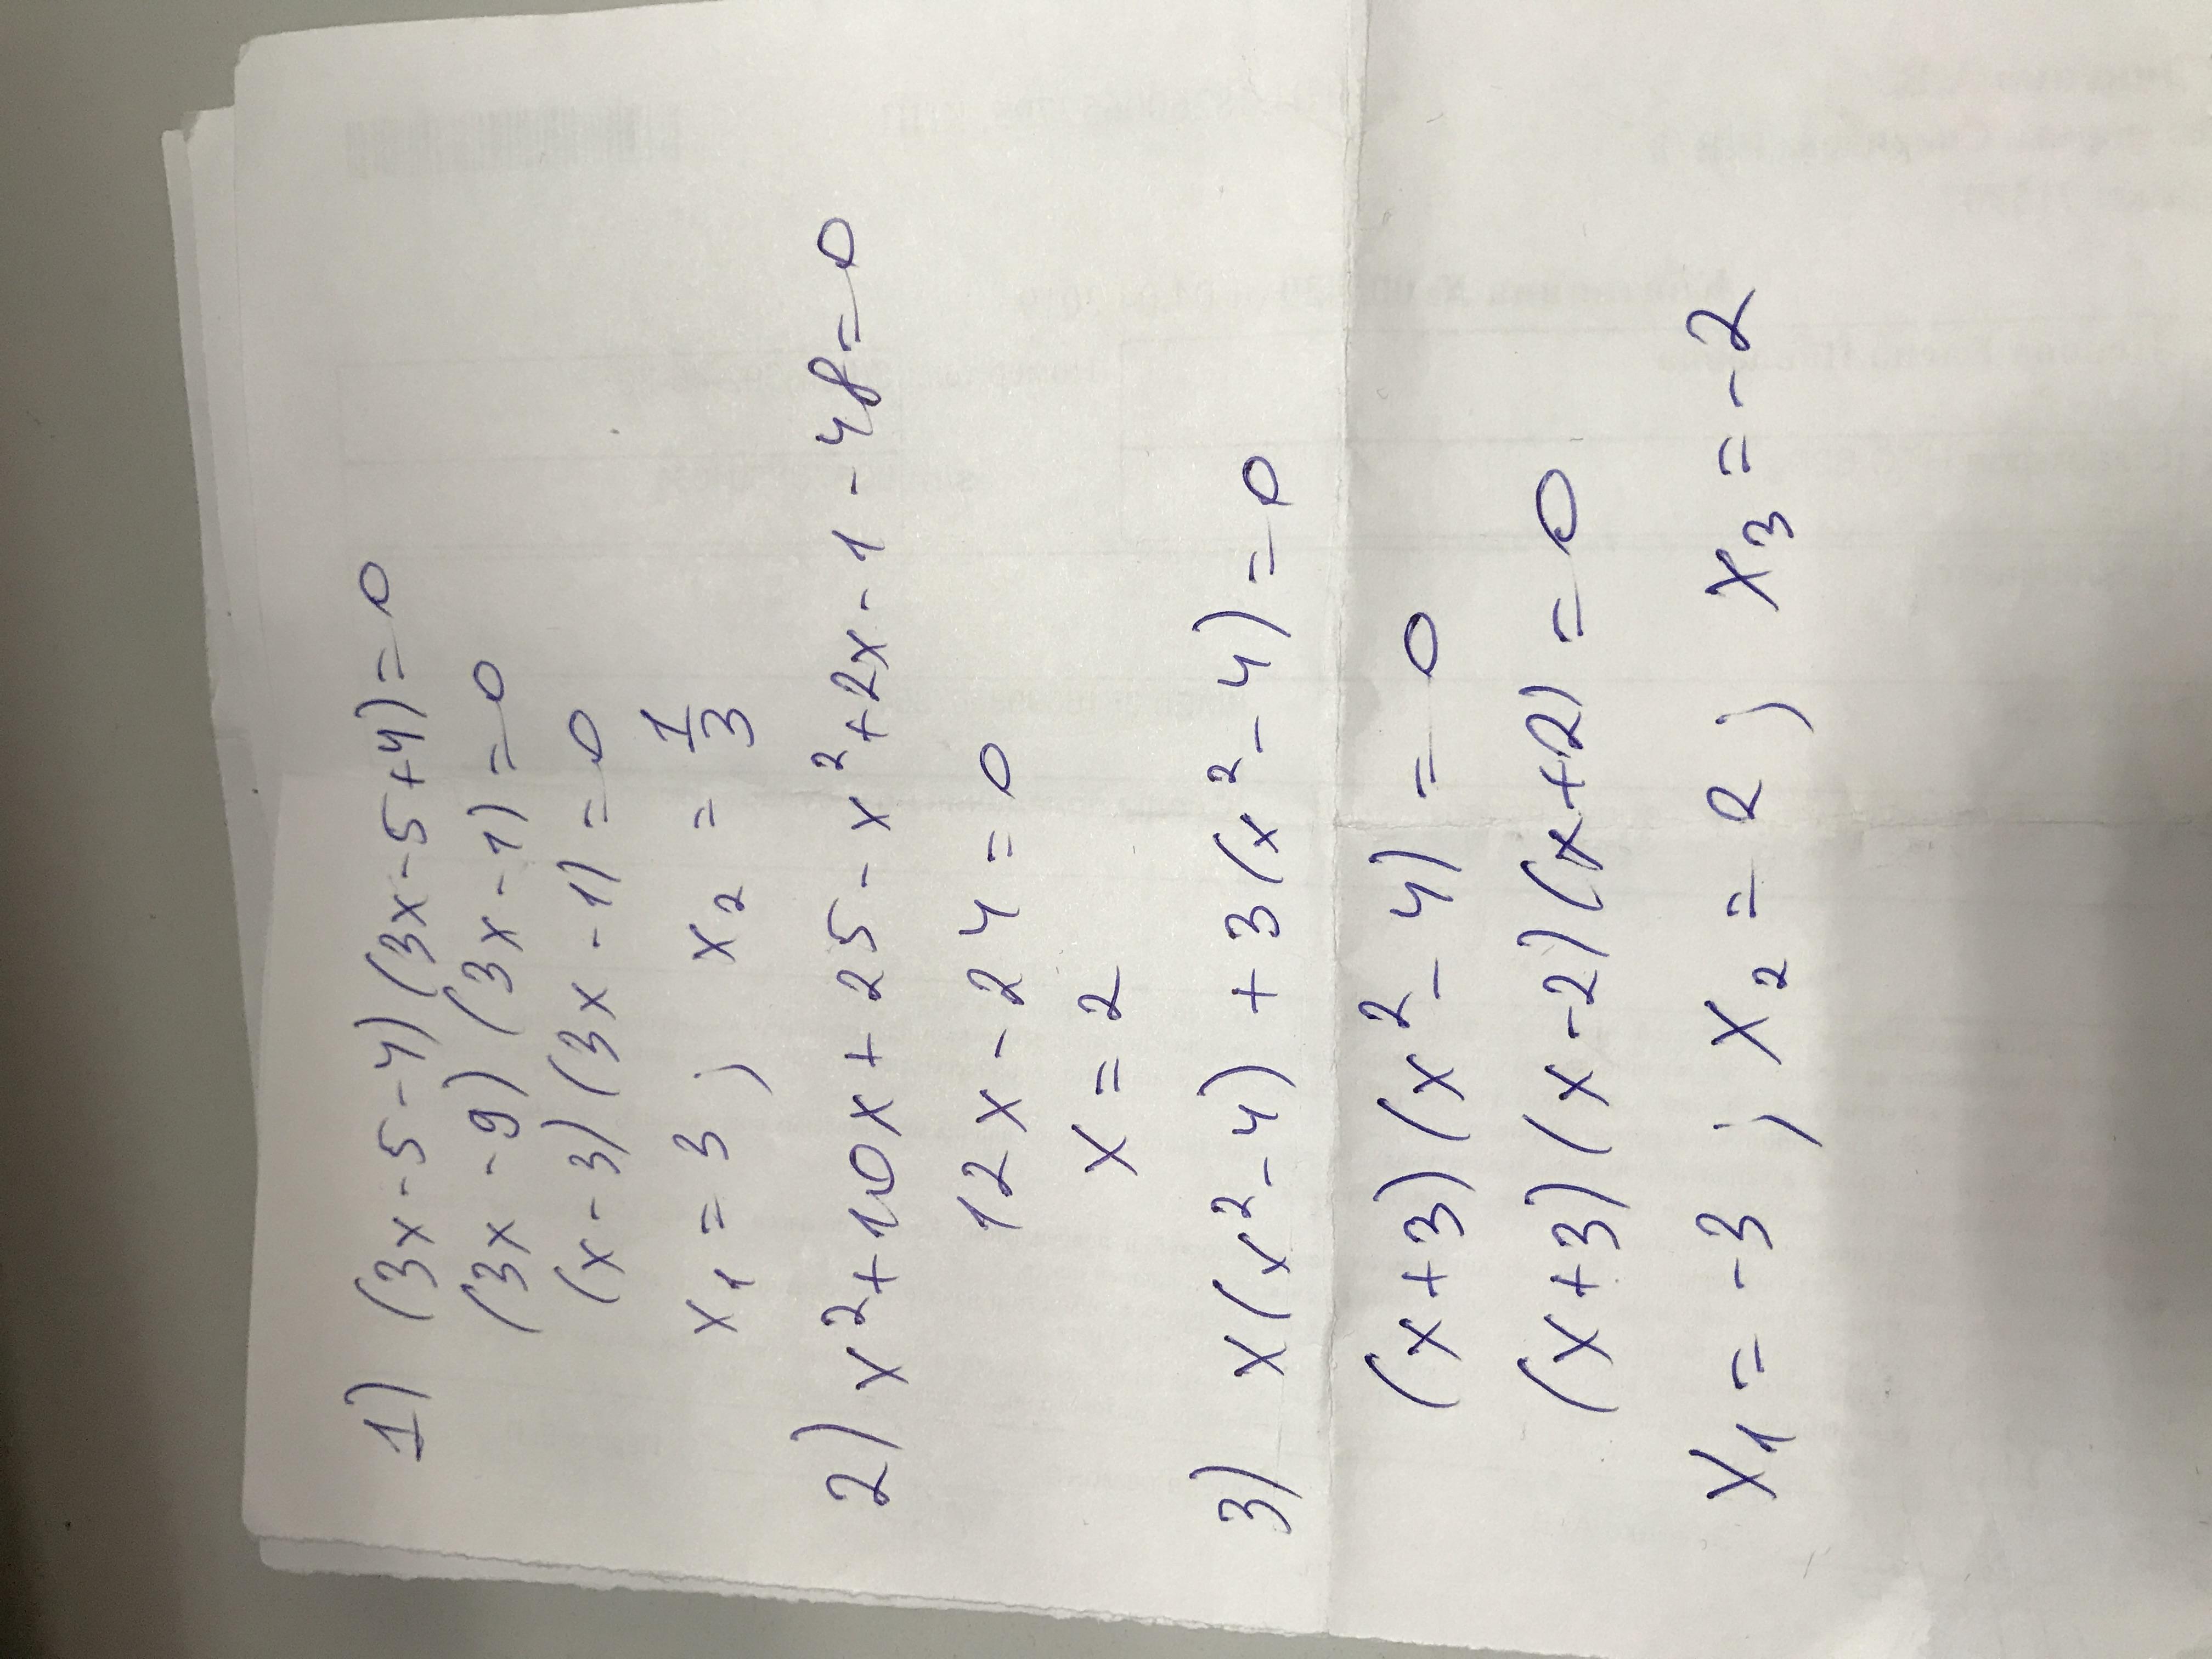 1) (3x-5-4)(3x-5+4)=0
(3x-9)(3x-1)=0
(x-3)(3x-1)=0
x₁=3; x₂=1/3
2) x²+10x+25-x²+2x-1-48=0
12x-24=0
x=2
3) x(x²-4)+3(x²-4)=0
(x+3)(x²-4)=0
(x+3)(x-2)(x+2)=0
x₁=-3; x₂=2; x₃=-2